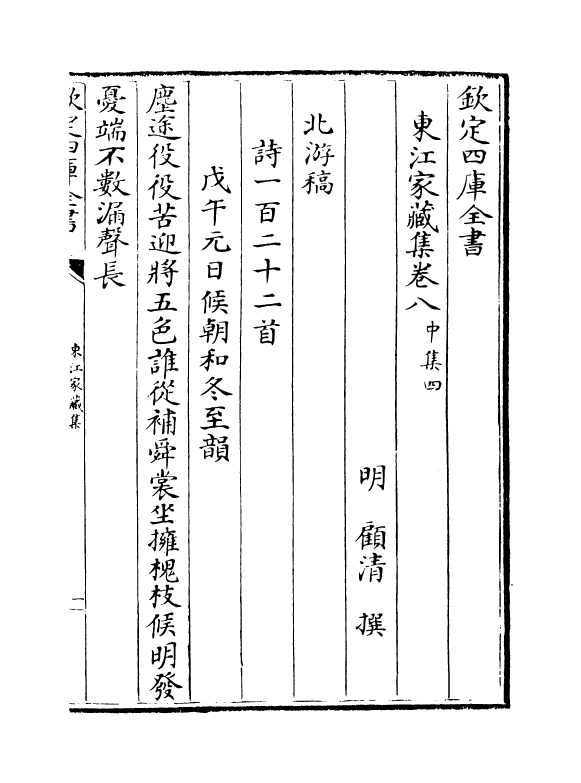 欽定四庫全書
東江家藏集卷八 中集四
明 顧清 撰
北游稿
詩一百二十二首
戊午元日候朝和冬至韻
塵途役役苦迎將五色誰從補舜裳坐擁槐枝候明發
憂端不數漏聲長
欽定四庫全書
東江家藏集
一